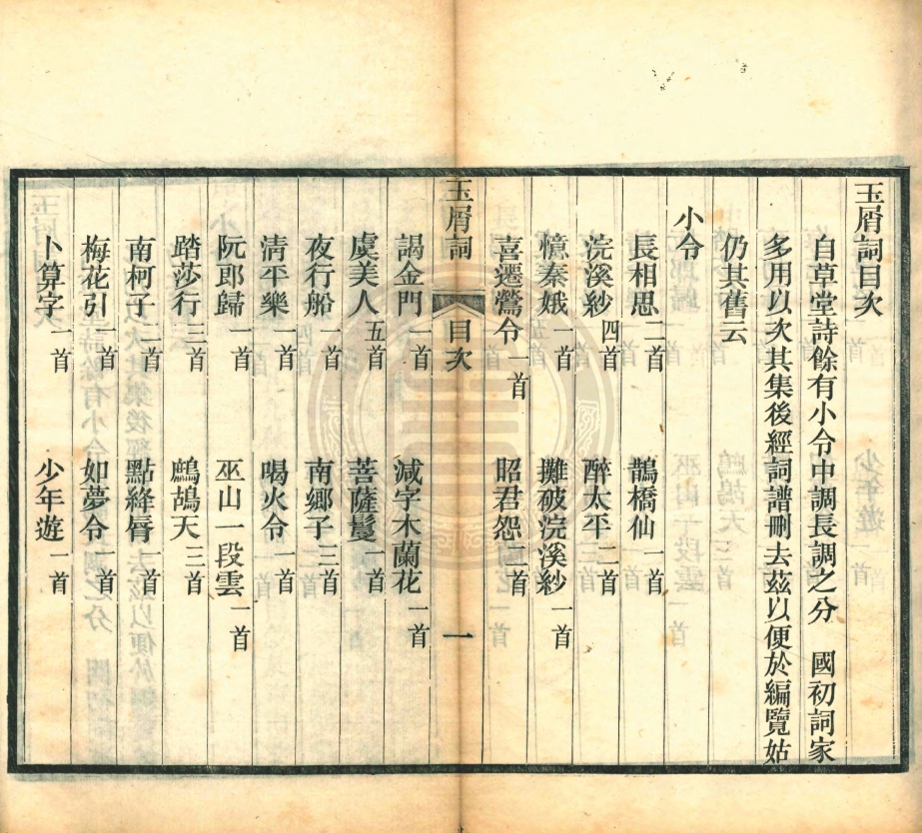 玉屑詞目次
自草堂詩餘有小令中調長調之分　國初詞家
多用以次其集後經詞譜刪去茲以便於編覽姑
仍其舊云
小令
長相思二首　鵲橋仙一首
浣溪紗四首　醉太平二首
憶秦娥一首　攤破浣溪紗一首
喜遷鶯令一首　昭君怨二首
玉屑詞　目次　一
謁金門一首　減字木蘭花一首
虞美人五首　菩薩鬘一首
夜行船一首　南鄉子三首
清平樂一首　喝火令一首
阮郎歸一首　巫山一段雲一首
踏莎行三首　鷓鴣天三首
南柯子二首　點絳脣一首
梅花引一首　如夢令一首
卜算子一首　少年遊一首